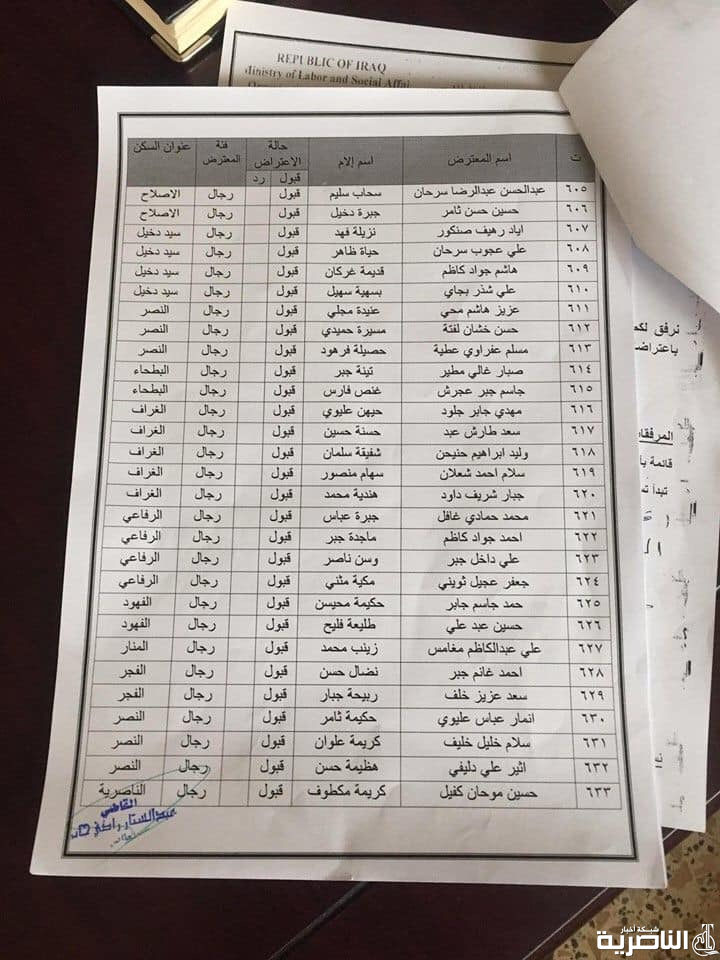 REPUBLIC OF IRAQ
Ministry of Labor and Social Affair
ت اسم المعترض اسم الام حالة الاعتراض قبول رد فئة المعترض عنوان السكن
٦٠٥ عبدالحسن عبدالرضا سرحان سحاب سليم قبول رجال الاصلاح
٦٠٦ حسين حسن ثامر جبرة دخيل قبول رجال الاصلاح
٦٠٧ اياد رهيف صنكور نزيلة فهد قبول رجال سيد دخيل
٦٠٨ علي عجوب سرحان حياة ظاهر قبول رجال سيد دخيل
٦٠٩ هاشم جواد كاظم قديمة غركان قبول رجال سيد دخيل
٦١٠ علي شذر بجاي بسهية سهيل قبول رجال سيد دخيل
٦١١ عزيز هاشم محي عنيدة مجلي قبول رجال النصر
٦١٢ حسن خشان لفتة مسيرة حميدي قبول رجال النصر
٦١٣ مسلم عفراوي عطية حصيلة فرهود قبول رجال النصر
٦١٤ صبار غالي مطير تينة جبر قبول رجال البطحاء
٦١٥ جاسم جبر عجرش غنص فارس قبول رجال البطحاء
٦١٦ مهدي جابر جلود جيهن عليوي قبول رجال الغراف
٦١٧ سعد طارش عبد حسنة حسين قبول رجال الغراف
٦١٨ وليد ابراهيم حنيحن شفيقة سلمان قبول رجال الغراف
٦١٩ سلام احمد شعلان سهام منصور قبول رجال الغراف
٦٢٠ جبار شريف داود هندية محمد قبول رجال الغراف
٦٢١ محمد حمادي غافل جبرة عباس قبول رجال الرفاعي
٦٢٢ احمد جواد كاظم ماجدة جبر قبول رجال الرفاعي
٦٢٣ علي داخل جبر وسن ناصر قبول رجال الرفاعي
٦٢٤ جعفر عجيل ثويني مكية مثني قبول رجال الرفاعي
٦٢٥ حمد جاسم جابر حكيمة محيسن قبول رجال الفهود
٦٢٦ حسين عبد علي طليعة فليح قبول رجال الفهود
٦٢٧ علي عبدالكاظم مغامس زينب محمد قبول رجال المنار
٦٢٨ احمد غانم جبر نضال حسن قبول رجال الفجر
٦٢٩ سعد عزيز خلف ربيحة جبار قبول رجال الفجر
٦٣٠ انمار عباس عليوي حكيمة ثامر قبول رجال النصر
٦٣١ سلام خليل خليف كريمة علوان قبول رجال النصر
٦٣٢ اثير علي دليفي هظيمة حسن قبول رجال النصر
٦٣٣ حسين موحان كفيل كريمة مكطوف قبول رجال الناصرية
القاضي
نرفق لكم
باعتراض
المرفقا
قائمة بأ
تبدأ
شبكة أخبار
الناصرية